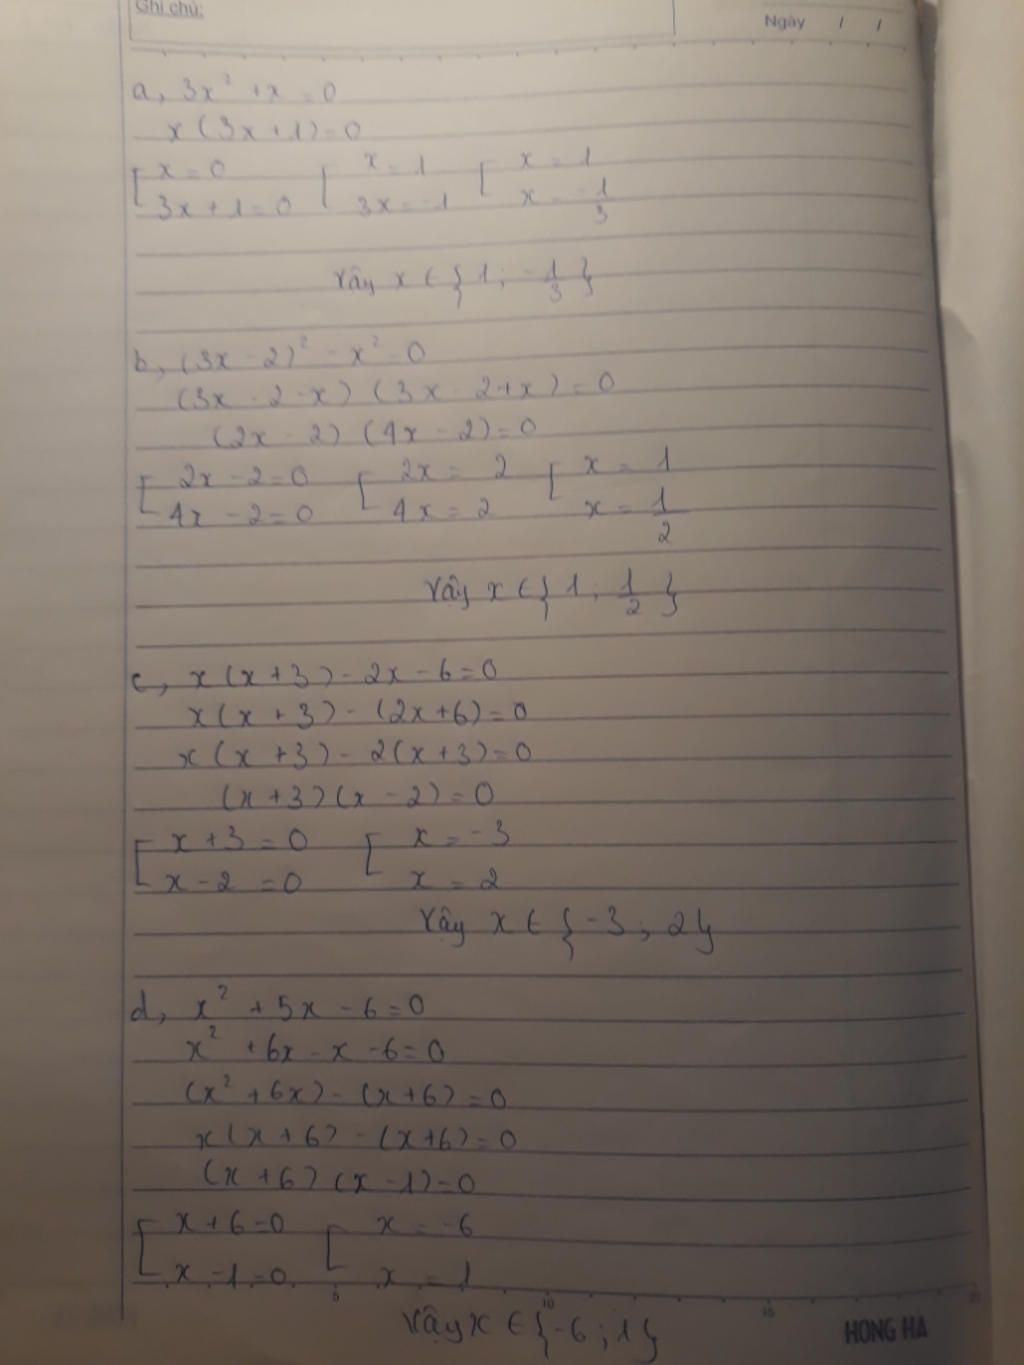 Ghi chú:
Ngày / /
a, 3x² + x = 0
x(3x+1) = 0
[ x = 0 [ x = 1 [ x = 1
3x+1 = 0 3x = -1 x = -1/3
Vậy x ∈ {1; -1/3}
b, (3x - 2)² - x² = 0
(3x - 2 - x) (3x - 2 + x) = 0
(2x - 2) (4x - 2) = 0
[ 2x - 2 = 0 [ 2x = 2 [ x = 1
4x - 2 = 0 4x = 2 x = 1/2
Vậy x ∈ {1; 1/2}
c, x(x+3) - 2x - 6 = 0
x(x+3) - (2x+6) = 0
x(x+3) - 2(x+3) = 0
(x+3)(x-2) = 0
[ x+3 = 0 [ x = -3
x-2 = 0 x = 2
Vậy x ∈ {-3; 2}
d, x² + 5x - 6 = 0
x² + 6x - x - 6 = 0
(x² + 6x) - (x+6) = 0
x(x+6) - (x+6) = 0
(x+6)(x-1) = 0
[ x+6 = 0 [ x = -6
x-1 = 0 x = 1
5 10 15 20
Vậy x ∈ {-6; 1}
HONG HA